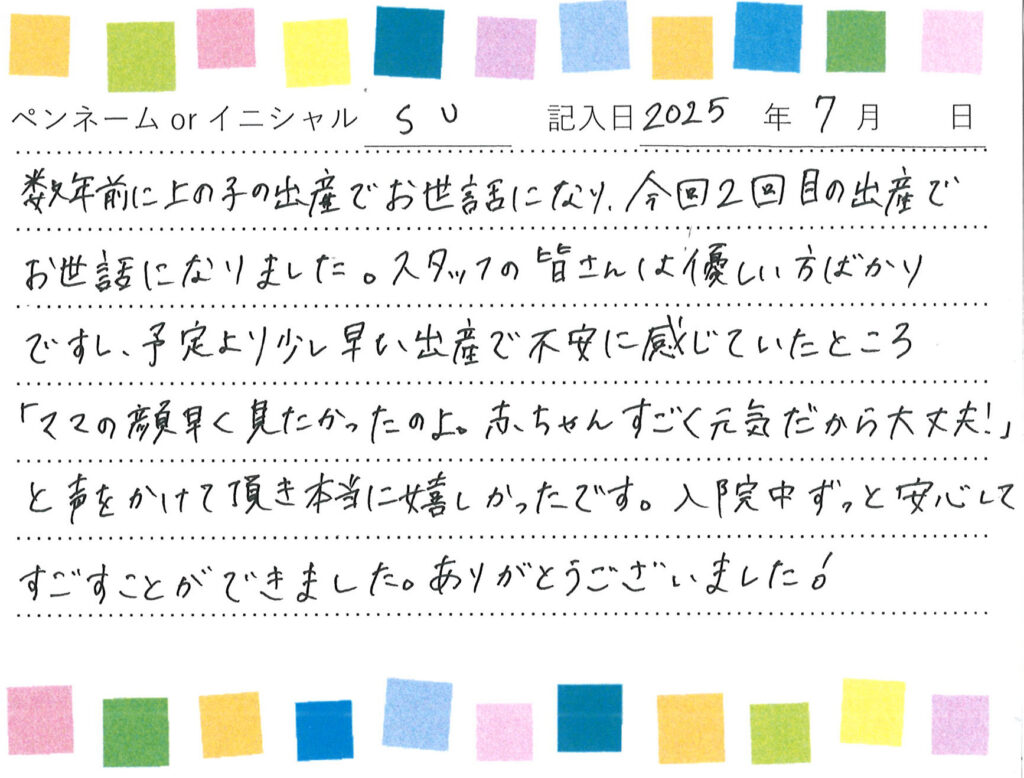 ペンネーム or イニシャル S U 記入日 2025 年 7 月 日
数年前に上の子の出産でお世話になり、今回2回目の出産で
お世話になりました。スタッフの皆さんは優しい方ばかり
ですし、予定より少し早い出産で不安に感じていたところ
「ママの顔早く見たかったのよ。赤ちゃんすごく元気だから大丈夫!」
と声をかけて頂き本当に嬉しかったです。入院中ずっと安心して
すごすことができました。ありがとうございました!